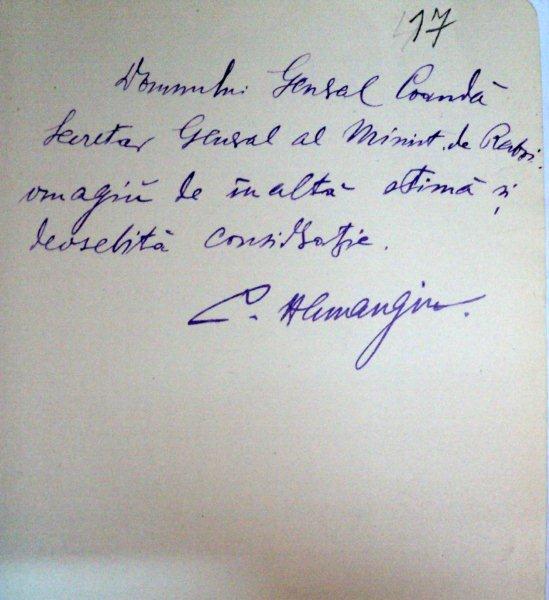 17
Domnului General Coandă
Secretar General al Minist. de Rezboi.
omagiŭ de înaltă stimă și
deosebită considerație.
C. Hamangiu.